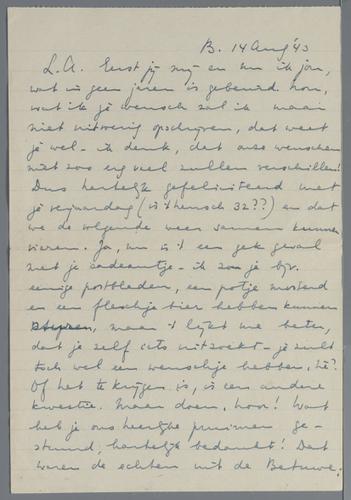 B. 14 Aug '43
L.A. Eerst jij mij en nu ik jou,
wat in geen jaren is gebeurd. Nou,
wat ik je wensch zal ik maar
niet uitvoerig opschrijven, dat weet
je wel - ik denk, dat onze wenschen
niet zoo erg veel zullen verschillen!
Dus hartelijk gefeliciteerd met
je verjaardag (is 't heusch 32??) en dat
we de volgende weer samen kunnen
vieren. Ja, nu is 't een gek geval
met je cadeautje - ik zou je bijv.
eenige postbladen, een potje mosterd
en een fleschje bier hebben kunnen
sturen, maar 't lijkt me beter,
dat je zelf iets uitzoekt - je zult
toch wel een wenschje hebben, hè?
Of het te krijgen is, is een andere
kwestie. Maar doen, hoor! Wat
heb je ons heerlijke pruimen ge-
stuurd, hartelijk bedankt! Dat
waren de echten uit de Betuwe.